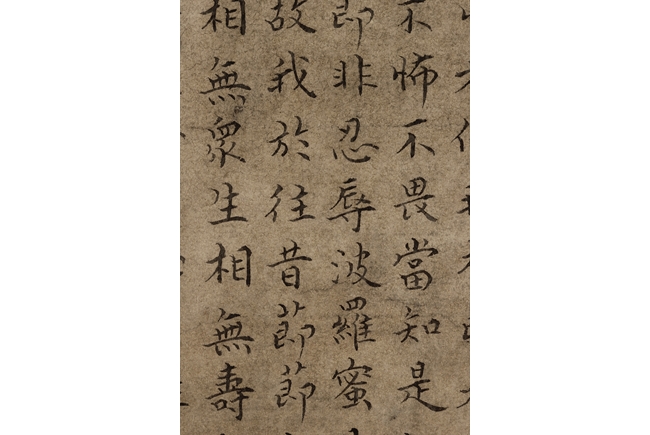 不怖不畏當知是
即非忍辱波羅蜜
故我於往昔節節
相無眾生相無壽